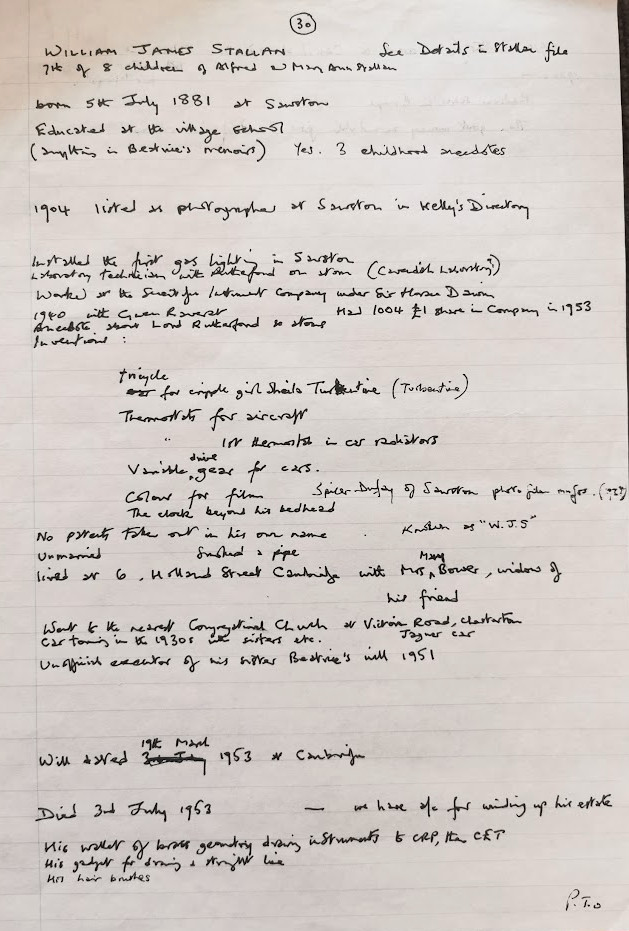 30
WILLIAM JAMES STALLAN See Details in Stallan file
7th of 8 children of Alfred & Mary Ann Stallan
born 5th July 1881 at Sawston
Educated at the village school
(anything in Beatrice's memoirs) Yes. 3 childhood anecdotes
1904 listed as photographer at Sawston in Kelly's Directory
Installed the first gas lighting in Sawston
Laboratory technician with Rutherford on atom (Cavendish Laboratory?)
Worked at the Scientific Instrument Company under Sir Horace Darwin
1940 with Gwen Raverat Had 1004 £1 share in Company in 1953
Anecdote about Lord Rutherford &
Inventions :
tricycle
for cripple girl Sheila Turbutine (Turbentine)
Thermostats for aircraft
" 1st thermostat in car radiators
Variable drive gear for cars.
Colour for film Spicer-Dufay of Sawston photo film mfrs. (1929)
The clock beyond his bedhead
No patents taken out in his own name. Known as "W.J.S"
Unmarried Smoked a pipe
lived at 6, Holland Street Cambridge with Mrs Mary Bower, widow of
his friend
Went to the nearest Congregational Church at Victoria Road, Chesterton
Car touring in the 1930s with sisters etc. Jaguar car
Unofficial executor of his sister Beatrice's will 1951
Will dated 19th March 1953 at Cambridge
Died 3rd July 1953 — we have a/c for winding up his estate
His wallet of brass geometry drawing instruments to CRP, then CET
His gadget for drawing a straight line
His hair brushes
P.T.O